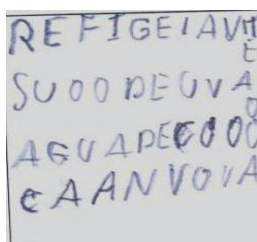 REFIGEIAVTE
SUOODEUVA
AGUADECOOO
CAANVOVA